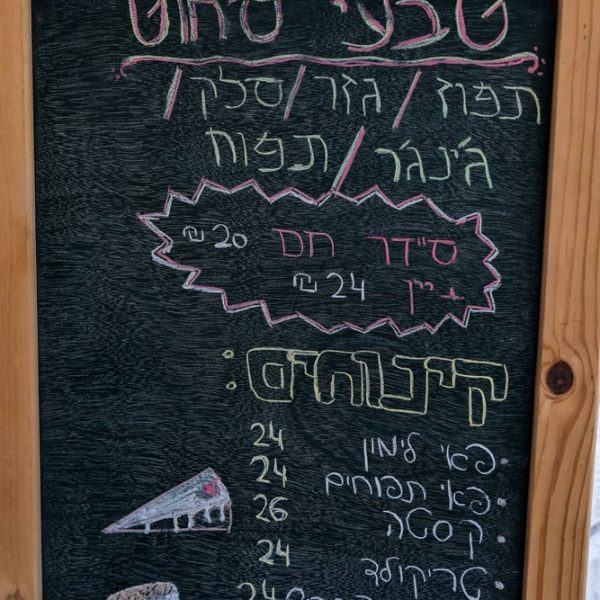 טבעי סחוט
תפוז / גזר / סלק /
ג'ינג'ר / תפוח
סיידר חם 20 ₪
+ יין 24 ₪
קינוחים:
• פאי לימון 24
• פאי תפוחים 24
• קסטה 26
• טריקולד 24
24